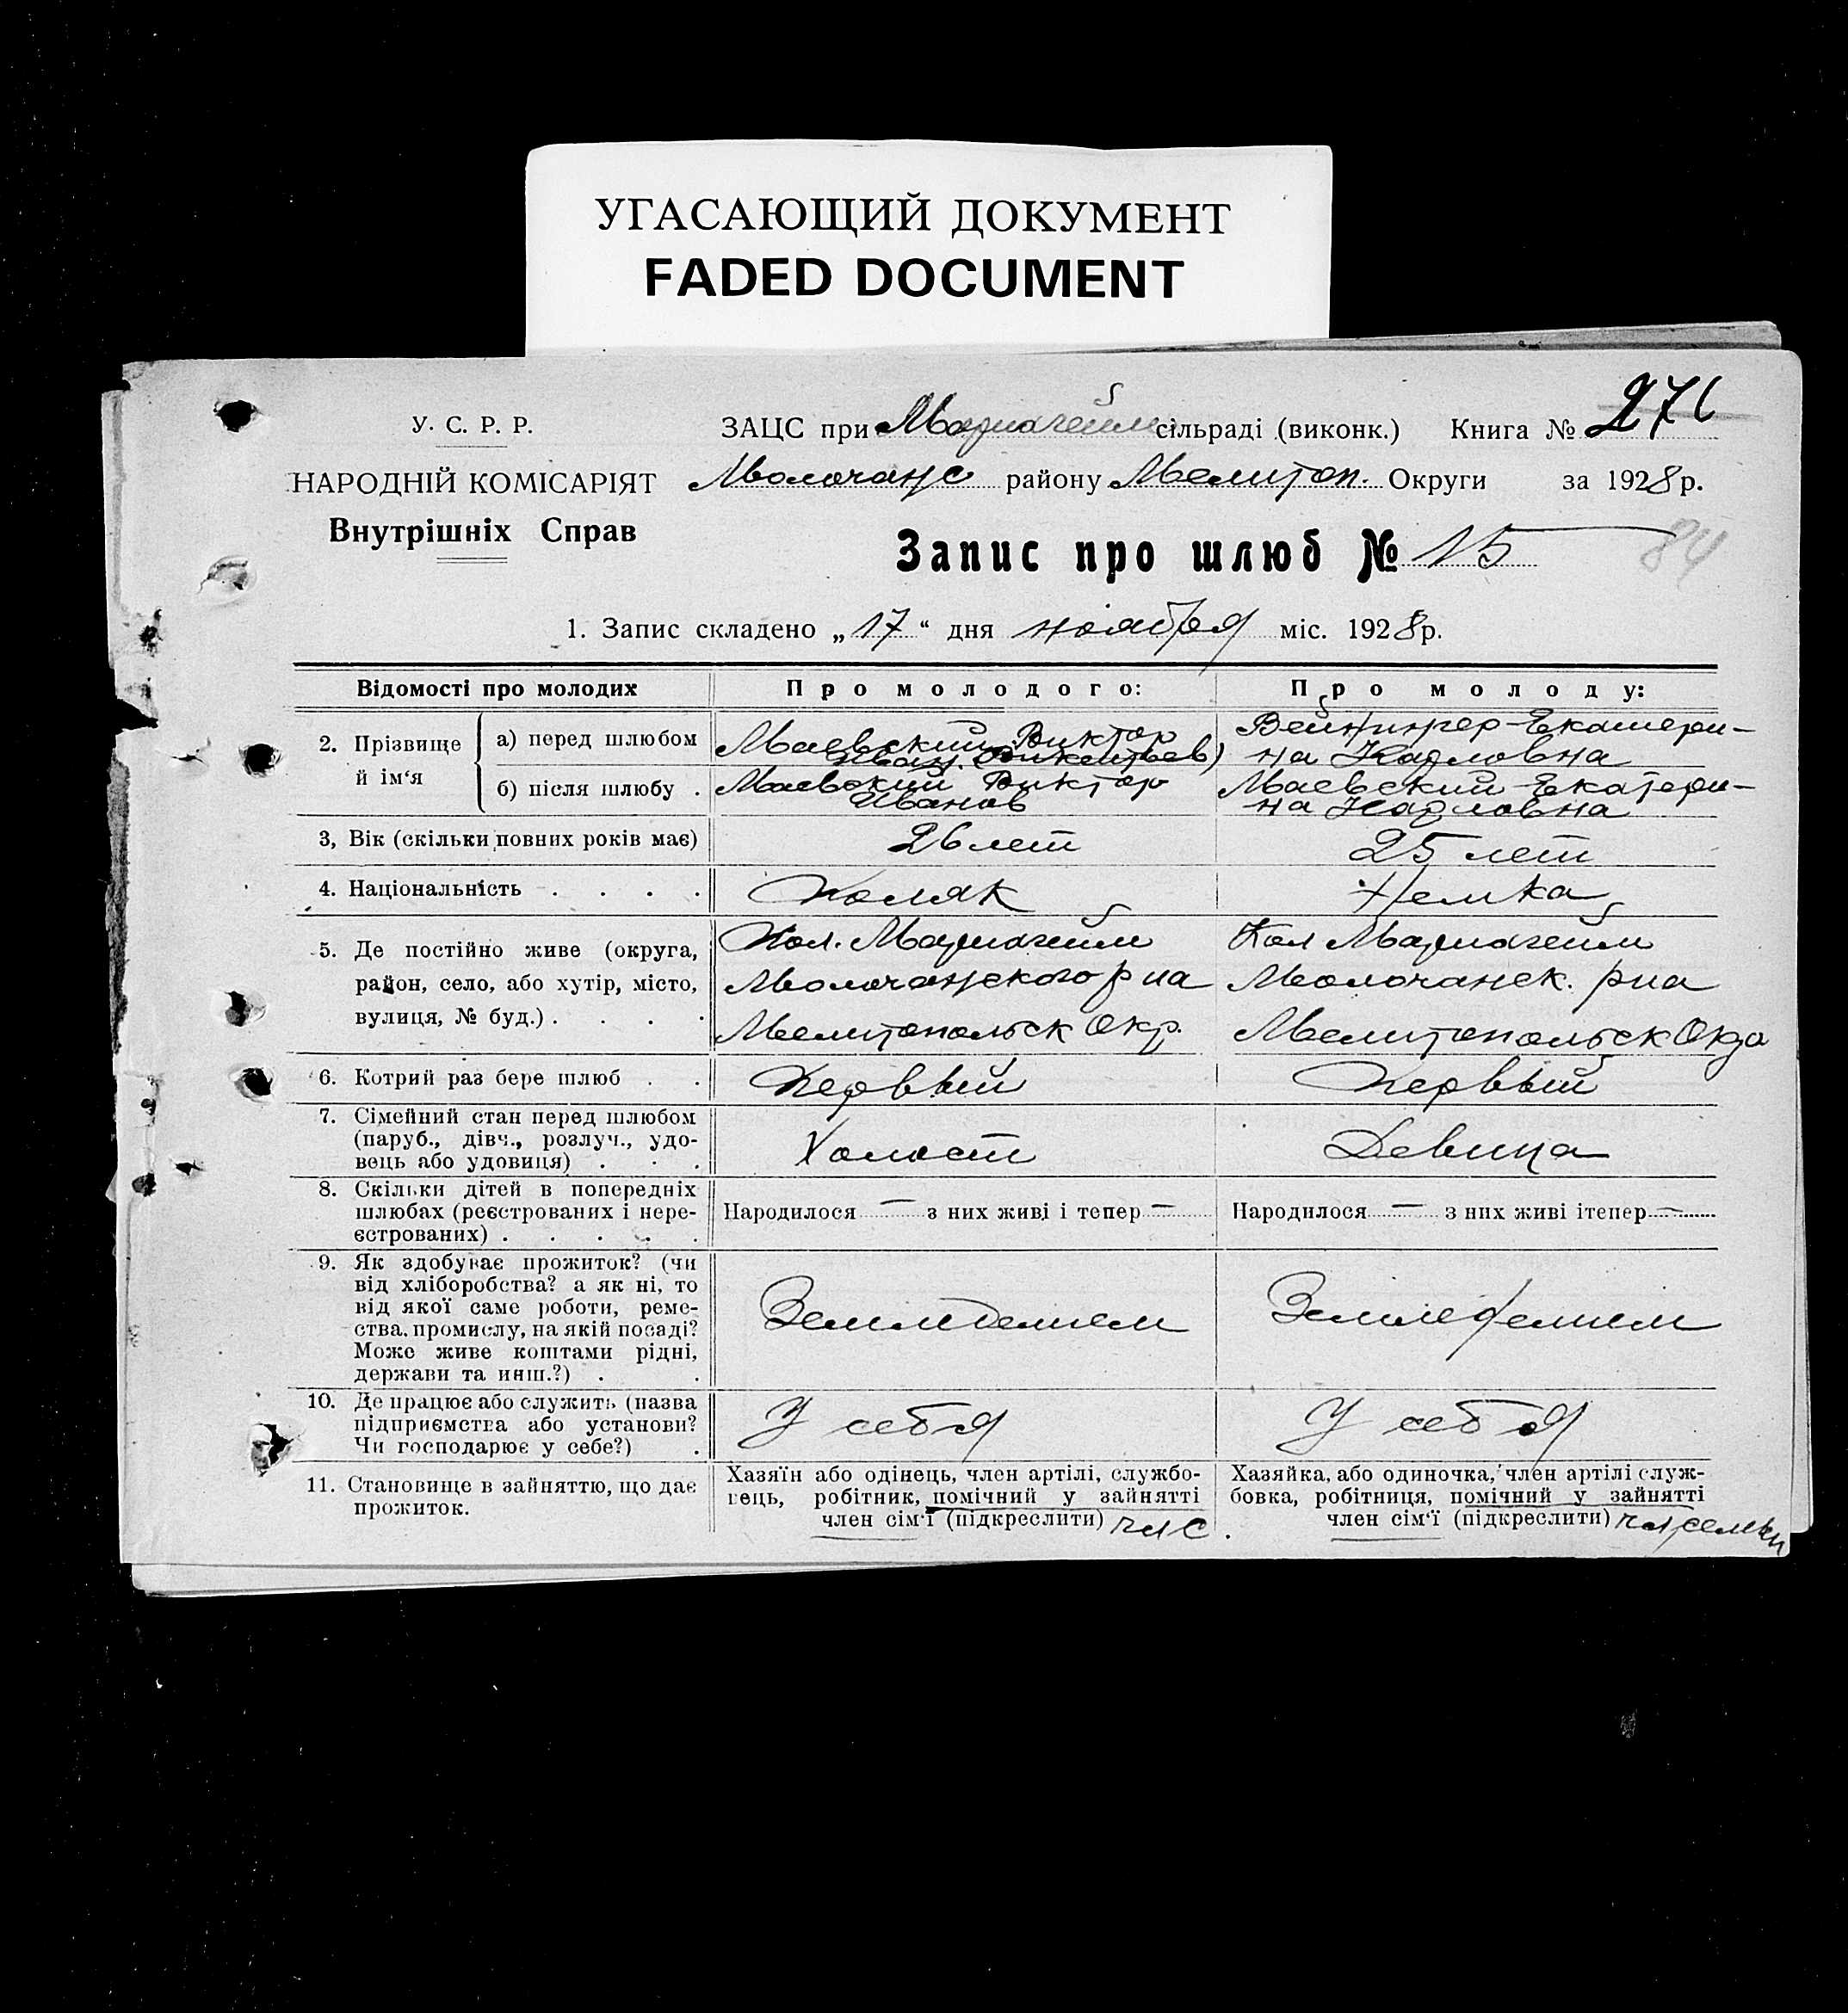 УГАСАЮЩИЙ ДОКУМЕНТ
FADED DOCUMENT
У. С. Р. Р.
НАРОДНІЙ КОМІСАРІЯТ
Внутрішніх Справ
ЗАЦС при Мариагейм сільраді (виконк.) Книга №
Молочанс району Мелитоп. Округи за 1928 р.
Запис про шлюб № 15
84
1. Запис складено „17“ дня ноября міс. 1928 р.
Відомості про молодих
Про молодого:
Про молоду:
2. Прізвище й ім‘я
а) перед шлюбом
Маевский Виктор
Иван. Викентьев)
Вейнингер Екатери-
на Карловна
б) після шлюбу .
Маевский Виктор
Иванов
Маевский Екатери-
на Карловна
3, Вік (скільки повних років має)
26 лет
25 лет
4. Національність . . . .
Поляк
Немка
5. Де постійно живе (округа,
район, село, або хутір, місто,
вулиця, № буд.) . . . .
Кол. Мариагейм
Молочанского р на
Мелитопольск Окр.
Кол Мариагейм
Молочанск. рна
Мелитопольск Окр
6. Котрий раз бере шлюб . .
Первый
Первый
7. Сімейний стан перед шлюбом
(паруб., дівч., розлуч., удо-
вець або удовиця) . . .
Холост
Девица
8. Скільки дітей в попередніх
шлюбах (реєстрованих і нере-
єстрованих) . . . . .
Народилося — з них живі і тепер —
Народилося — з них живі ітепер —
9. Як здобуває прожиток? (чи
від хліборобства? а як ні, то
від якої саме роботи, реме-
ства, промислу, на якій посаді?
Може живе коштами рідні,
держави та инш.?) . .
Земледелием
Земледелием
10. Де працює або служить (назва
підприємства або установи?
Чи господарює у себе?) .
У себя
У себя
11. Становище в зайняттю, що дає
прожиток.
Хазяїн або одінець, член артілі, службо-
вець, робітник, помічний у зайнятті
член сім‘ї (підкреслити) чл с.
Хазяйка, або одиночка, член артілі служ-
бовка, робітниця, помічний у зайнятті
член сім‘ї (підкреслити) чл семьи